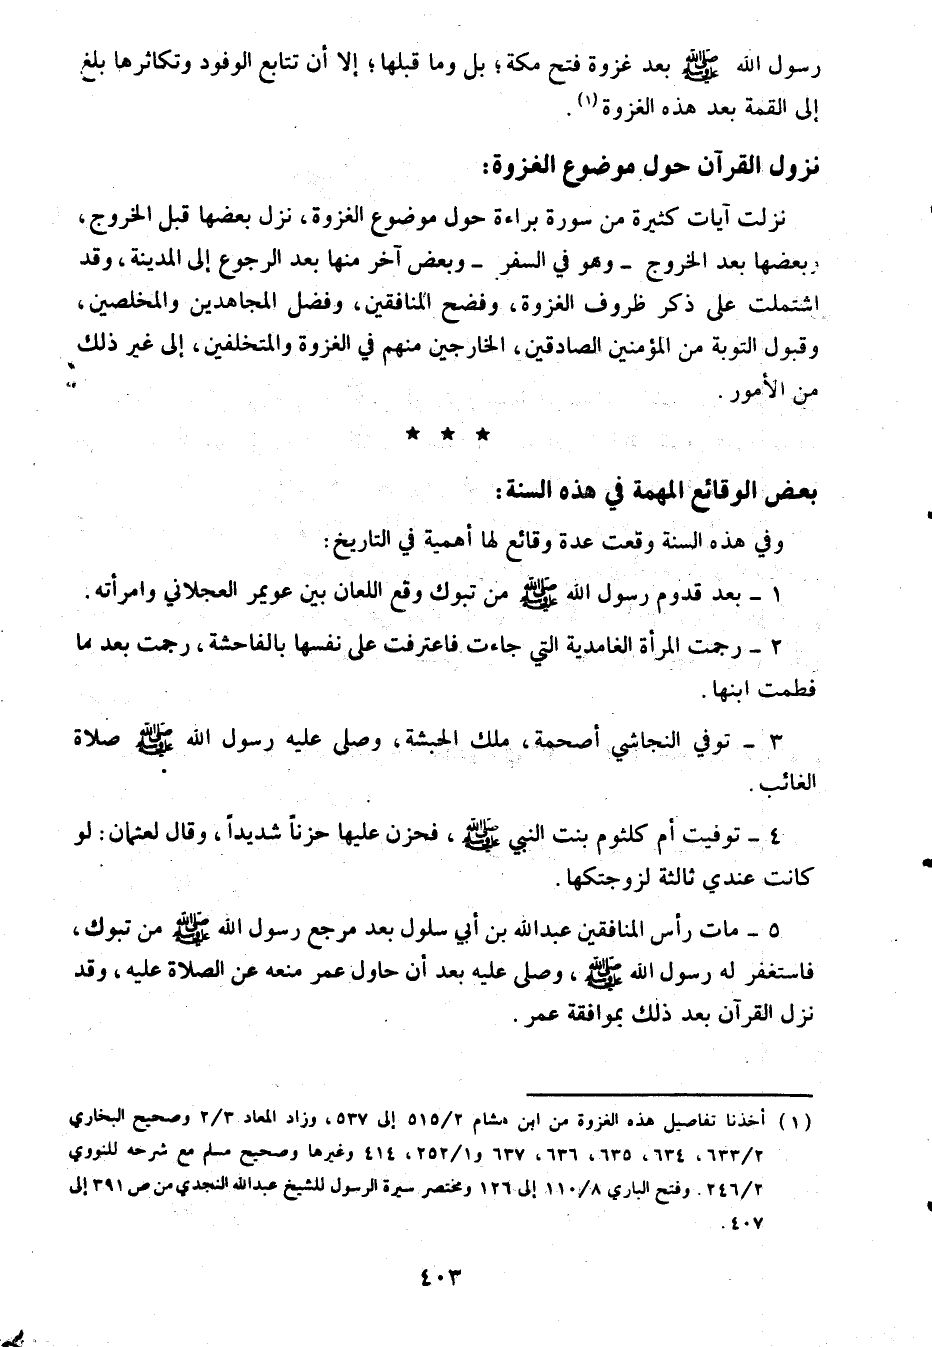 رسول الله ﷺ بعد غزوة فتح مكة؛ بل وما قبلها؛ إلا أن تتابع الوفود وتكاثرها بلغ
إلى القمة بعد هذه الغزوة(١).
نزول القرآن حول موضوع الغزوة:
نزلت آيات كثيرة من سورة براءة حول موضوع الغزوة، نزل بعضها قبل الخروج،
وبعضها بعد الخروج ـ وهو في السفر ـ وبعض آخر منها بعد الرجوع إلى المدينة، وقد
اشتملت على ذكر ظروف الغزوة، وفضح المنافقين، وفضل المجاهدين والمخلصين،
وقبول التوبة من المؤمنين الصادقين، الخارجين منهم في الغزوة والمتخلفين، إلى غير ذلك
من الأمور.
★ ★ ★
بعض الوقائع المهمة في هذه السنة:
وفي هذه السنة وقعت عدة وقائع لها أهمية في التاريخ:
١ ـ بعد قدوم رسول الله ﷺ من تبوك وقع اللعان بين عويمر العجلاني وامرأته.
٢ ـ رجمت المرأة الغامدية التي جاءت فاعترفت على نفسها بالفاحشة، رجمت بعد ما
فطمت ابنها.
٣ ـ توفي النجاشي أصحمة، ملك الحبشة، وصلى عليه رسول الله ﷺ صلاة
الغائب.
٤ ـ توفيت أم كلثوم بنت النبي ﷺ، فحزن عليها حزناً شديداً، وقال لعثمان: لو
كانت عندي ثالثة لزوجتكها.
٥ ـ مات رأس المنافقين عبدالله بن أبي سلول بعد مرجع رسول الله ﷺ من تبوك،
فاستغفر له رسول الله ﷺ، وصلى عليه بعد أن حاول عمر منعه عن الصلاة عليه، وقد
نزل القرآن بعد ذلك بموافقة عمر.
(١) أخذنا تفاصيل هذه الغزوة من ابن هشام ٥١٥/٢ إلى ٥٣٧، وزاد المعاد ٢/٣ وصحيح البخاري
٦٣٣/٢، ٦٣٤، ٦٣٥، ٦٣٦، ٦٣٧ و٢٥٢/١، ٤١٤ وغيرها وصحيح مسلم مع شرحه للنووي
٢٤٦/٢. وفتح الباري ١١٠/٨ إلى ١٢٦ ومختصر سيرة الرسول للشيخ عبدالله النجدي من ص ٣٩١ إلى
٤٠٧.
٤٠٣